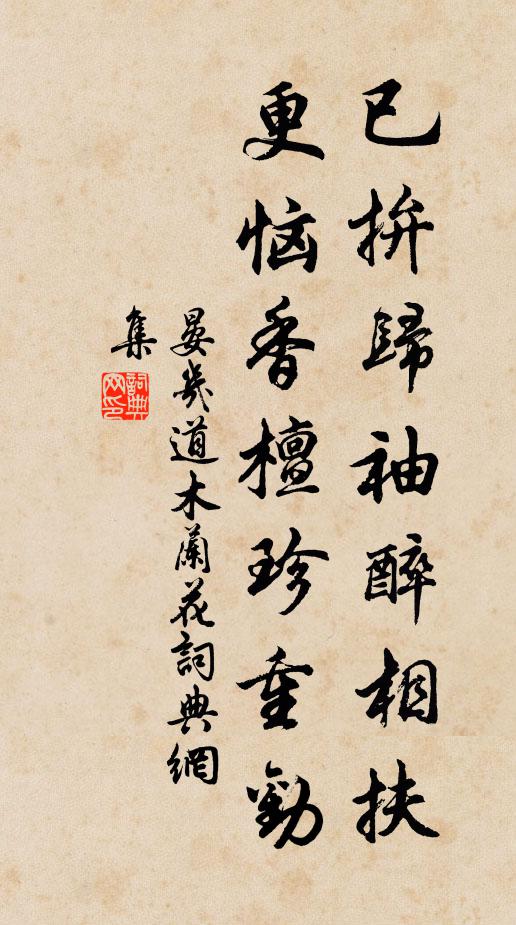 已拚歸袖醉相扶
更恼香檀珍重勸
晏幾道木蘭花詞典網
集
詞典
网印